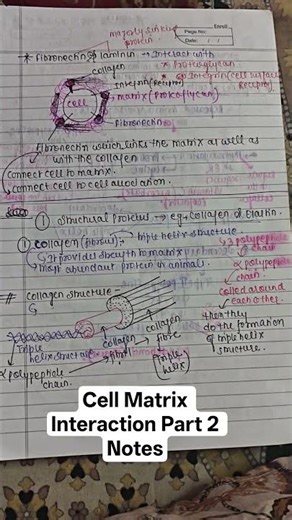 majorly sinking
protein
Enroll
Page No.:
Date: / /
* Fibronectin & laminin → Interact with
collagen * Proteoglycan
* Integrin (cell surface
Receptor)
Integrin (Receptor)
cell
matrix (Proteoglycan)
Fibronectin
Fibronectin which links the matrix as well as
with the collagen
connect cell to matrix.
connect cell to cell association.
① Structural Proteins → eg → Collagen & Elastin.
① Collagen (fibrous) → triple helix structure.
↳ It provides strength to matrix
↳ most abundant protein in animals
↳ 3 polypeptide
chain
α polypeptide
chain
coiled around
each other
then they
do the formation
of triple helix
structure.
# Collagen structure
Triple
helix structure
α polypeptide
chain.
collagen
fibril
collagen
fibre
(Triple
helix)
Cell Matrix
Interaction Part 2
Notes